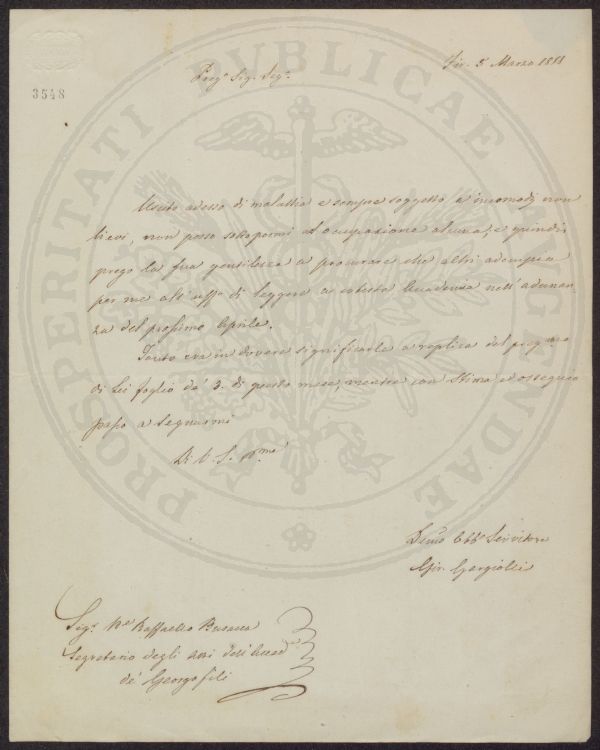 PROSPERITATI PVBLICAE AVGENDAE
3548
Fir. 5 Marzo
Preg. Sig. Seg.
Uscito adesso di malattia e sempre soggetto a incomodi non
lievi, non posso sottopormi ad occupazione alcuna, e quindi
prego la sua gentilezza a procurare che altri adempia
per me all' uff.o di leggere a cotesta Accademia nell' adunan
za del prossimo Aprile.
Tanto era in dovere significarle a replica del pregmo
di Lei foglio de' 3. di questo mese, mentre con stima ed ossequio
passo a segnarmi
Di V. S.
Servitore
Gir. Gargiolli
Sig.r Raffaello Busacca
Segretario degli Atti dell' Accad
de' Georgofili